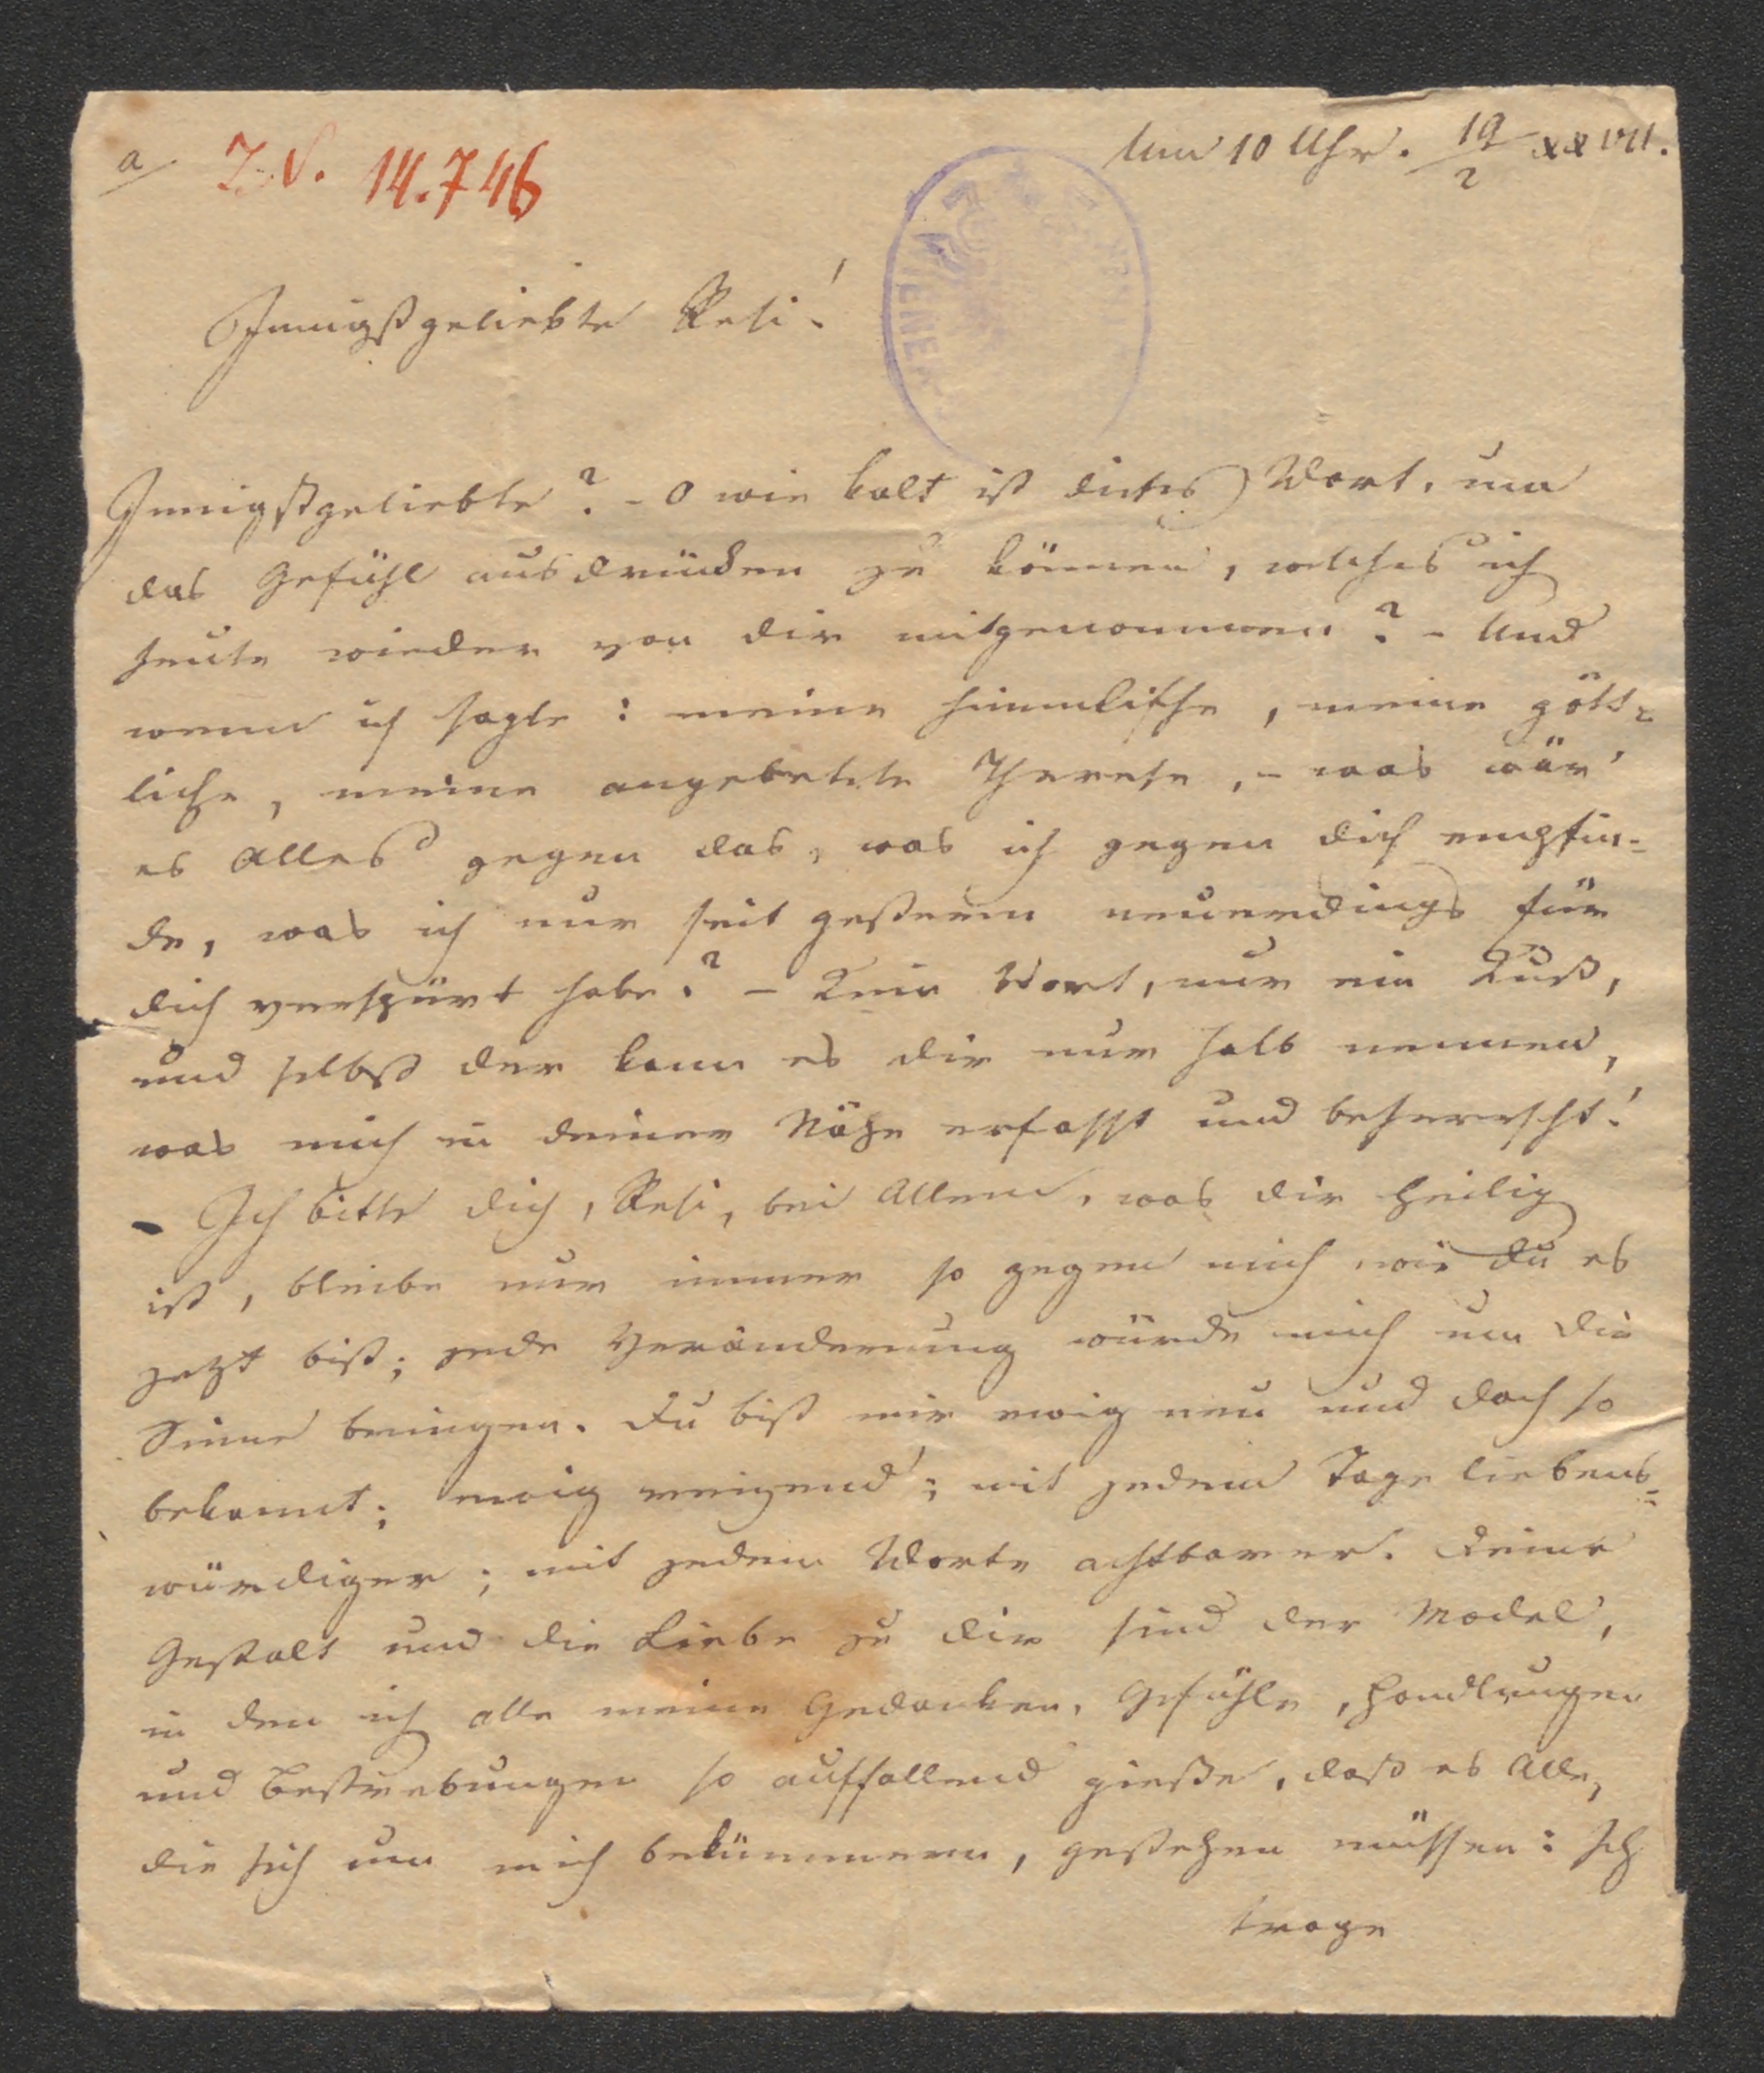 a
I.N. 14.746
Um 10 Uhr. 19/2 XXVII.
Innigstgeliebte Resi!
Innigstgeliebte? - O wie kalt ist dieses Wort, um
das Gefühl ausdrücken zu können, welches ich
heute wieder von dir mitgenommen? - Und
wenn ich sagte: meine himmlische, meine gött=
liche, meine angebethete Therese, - was wär'
es Alles gegen das, was ich gegen dich empfin-
de, was ich nur seit gestern neuerdings für
dich verspürt habe? - Kein Wort, nur ein Kuß,
und selbst der kann es dir nur halb nennen,
was mich in deiner Nähe erfasst und beherrscht!
- Ich bitte dich, Resi, bei Allem, was dir heilig
ist, bleibe nur immer so gegen mich wie du es
jetzt bist; jede Veränderung würde mich um die
Sinne bringen. Du bist mir ewig neu und doch so
bekannt; ewig reizend; mit jedem Tage liebens=
würdiger; mit jedem Worte achtbarer. Deine
Gestalt und die Liebe zu dir sind der Model,
in den ich alle meine Gedanken, Gefühle, Handlungen
und Bestrebungen so auffallend gieße, daß es Alle,
die sich um mich bekümmern, gestehen müssen: Ich
trage
WIENER